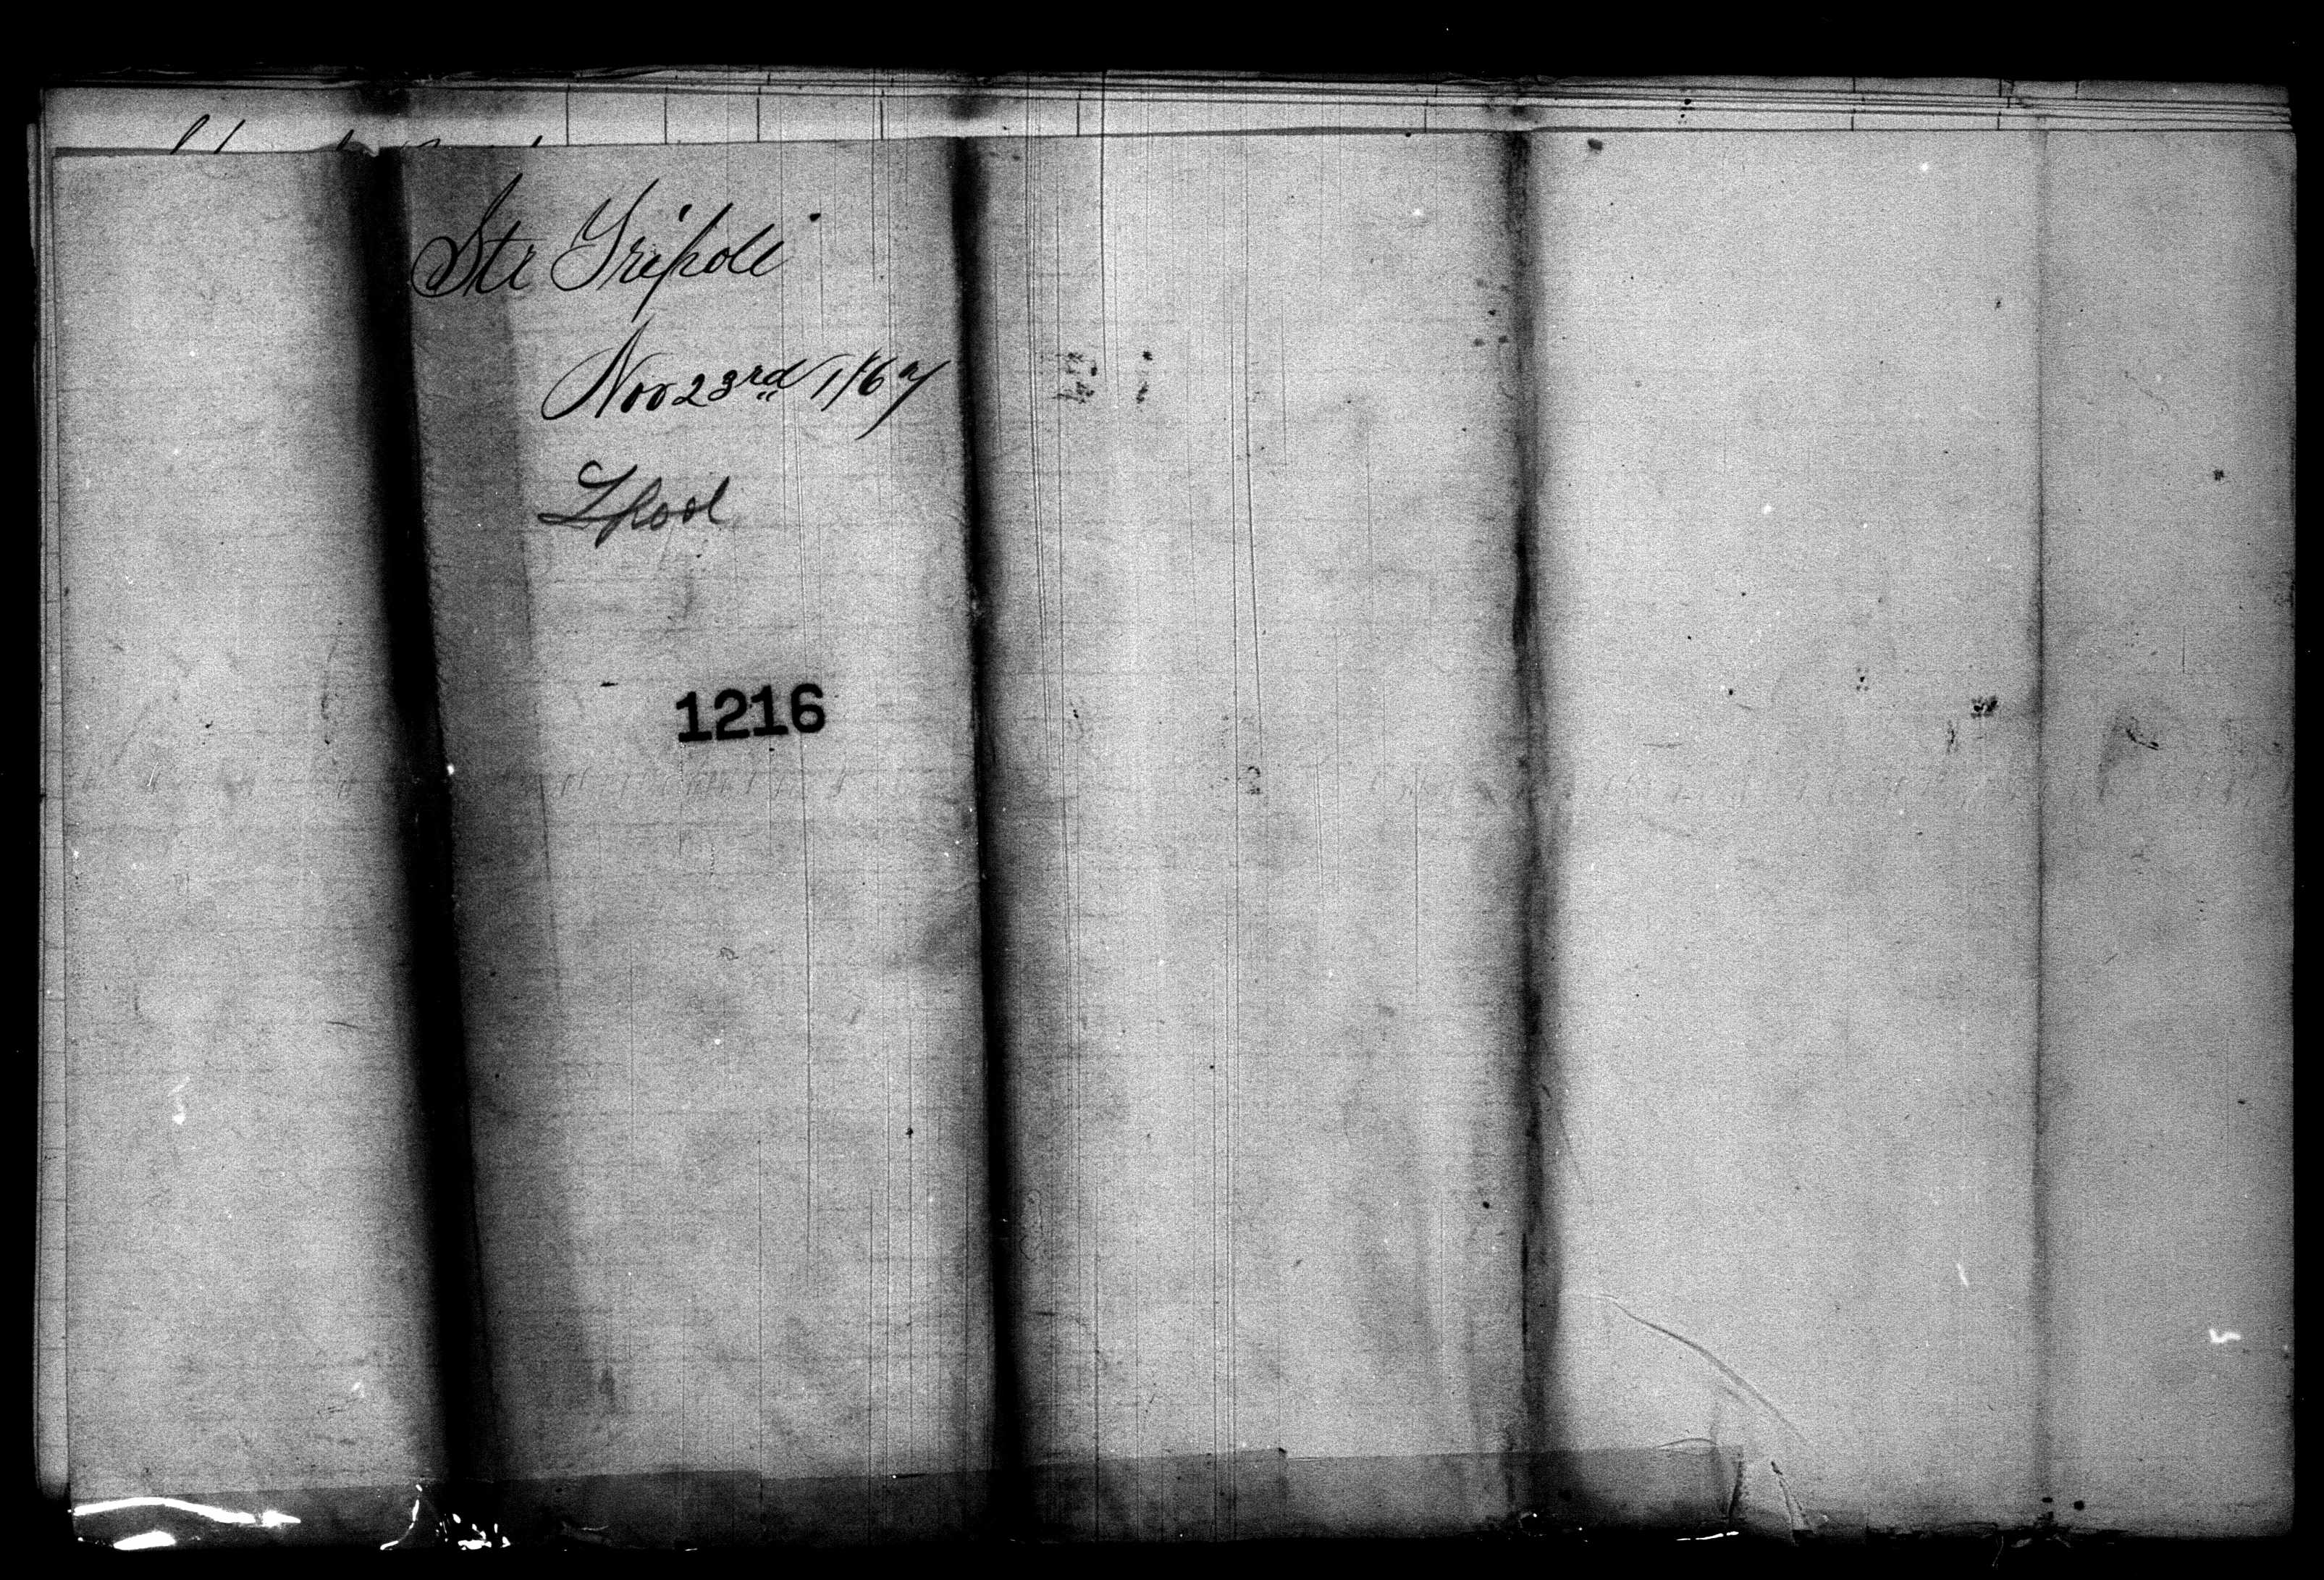 Str Tripoli
Nov 23rd 1867
Lpool
1216